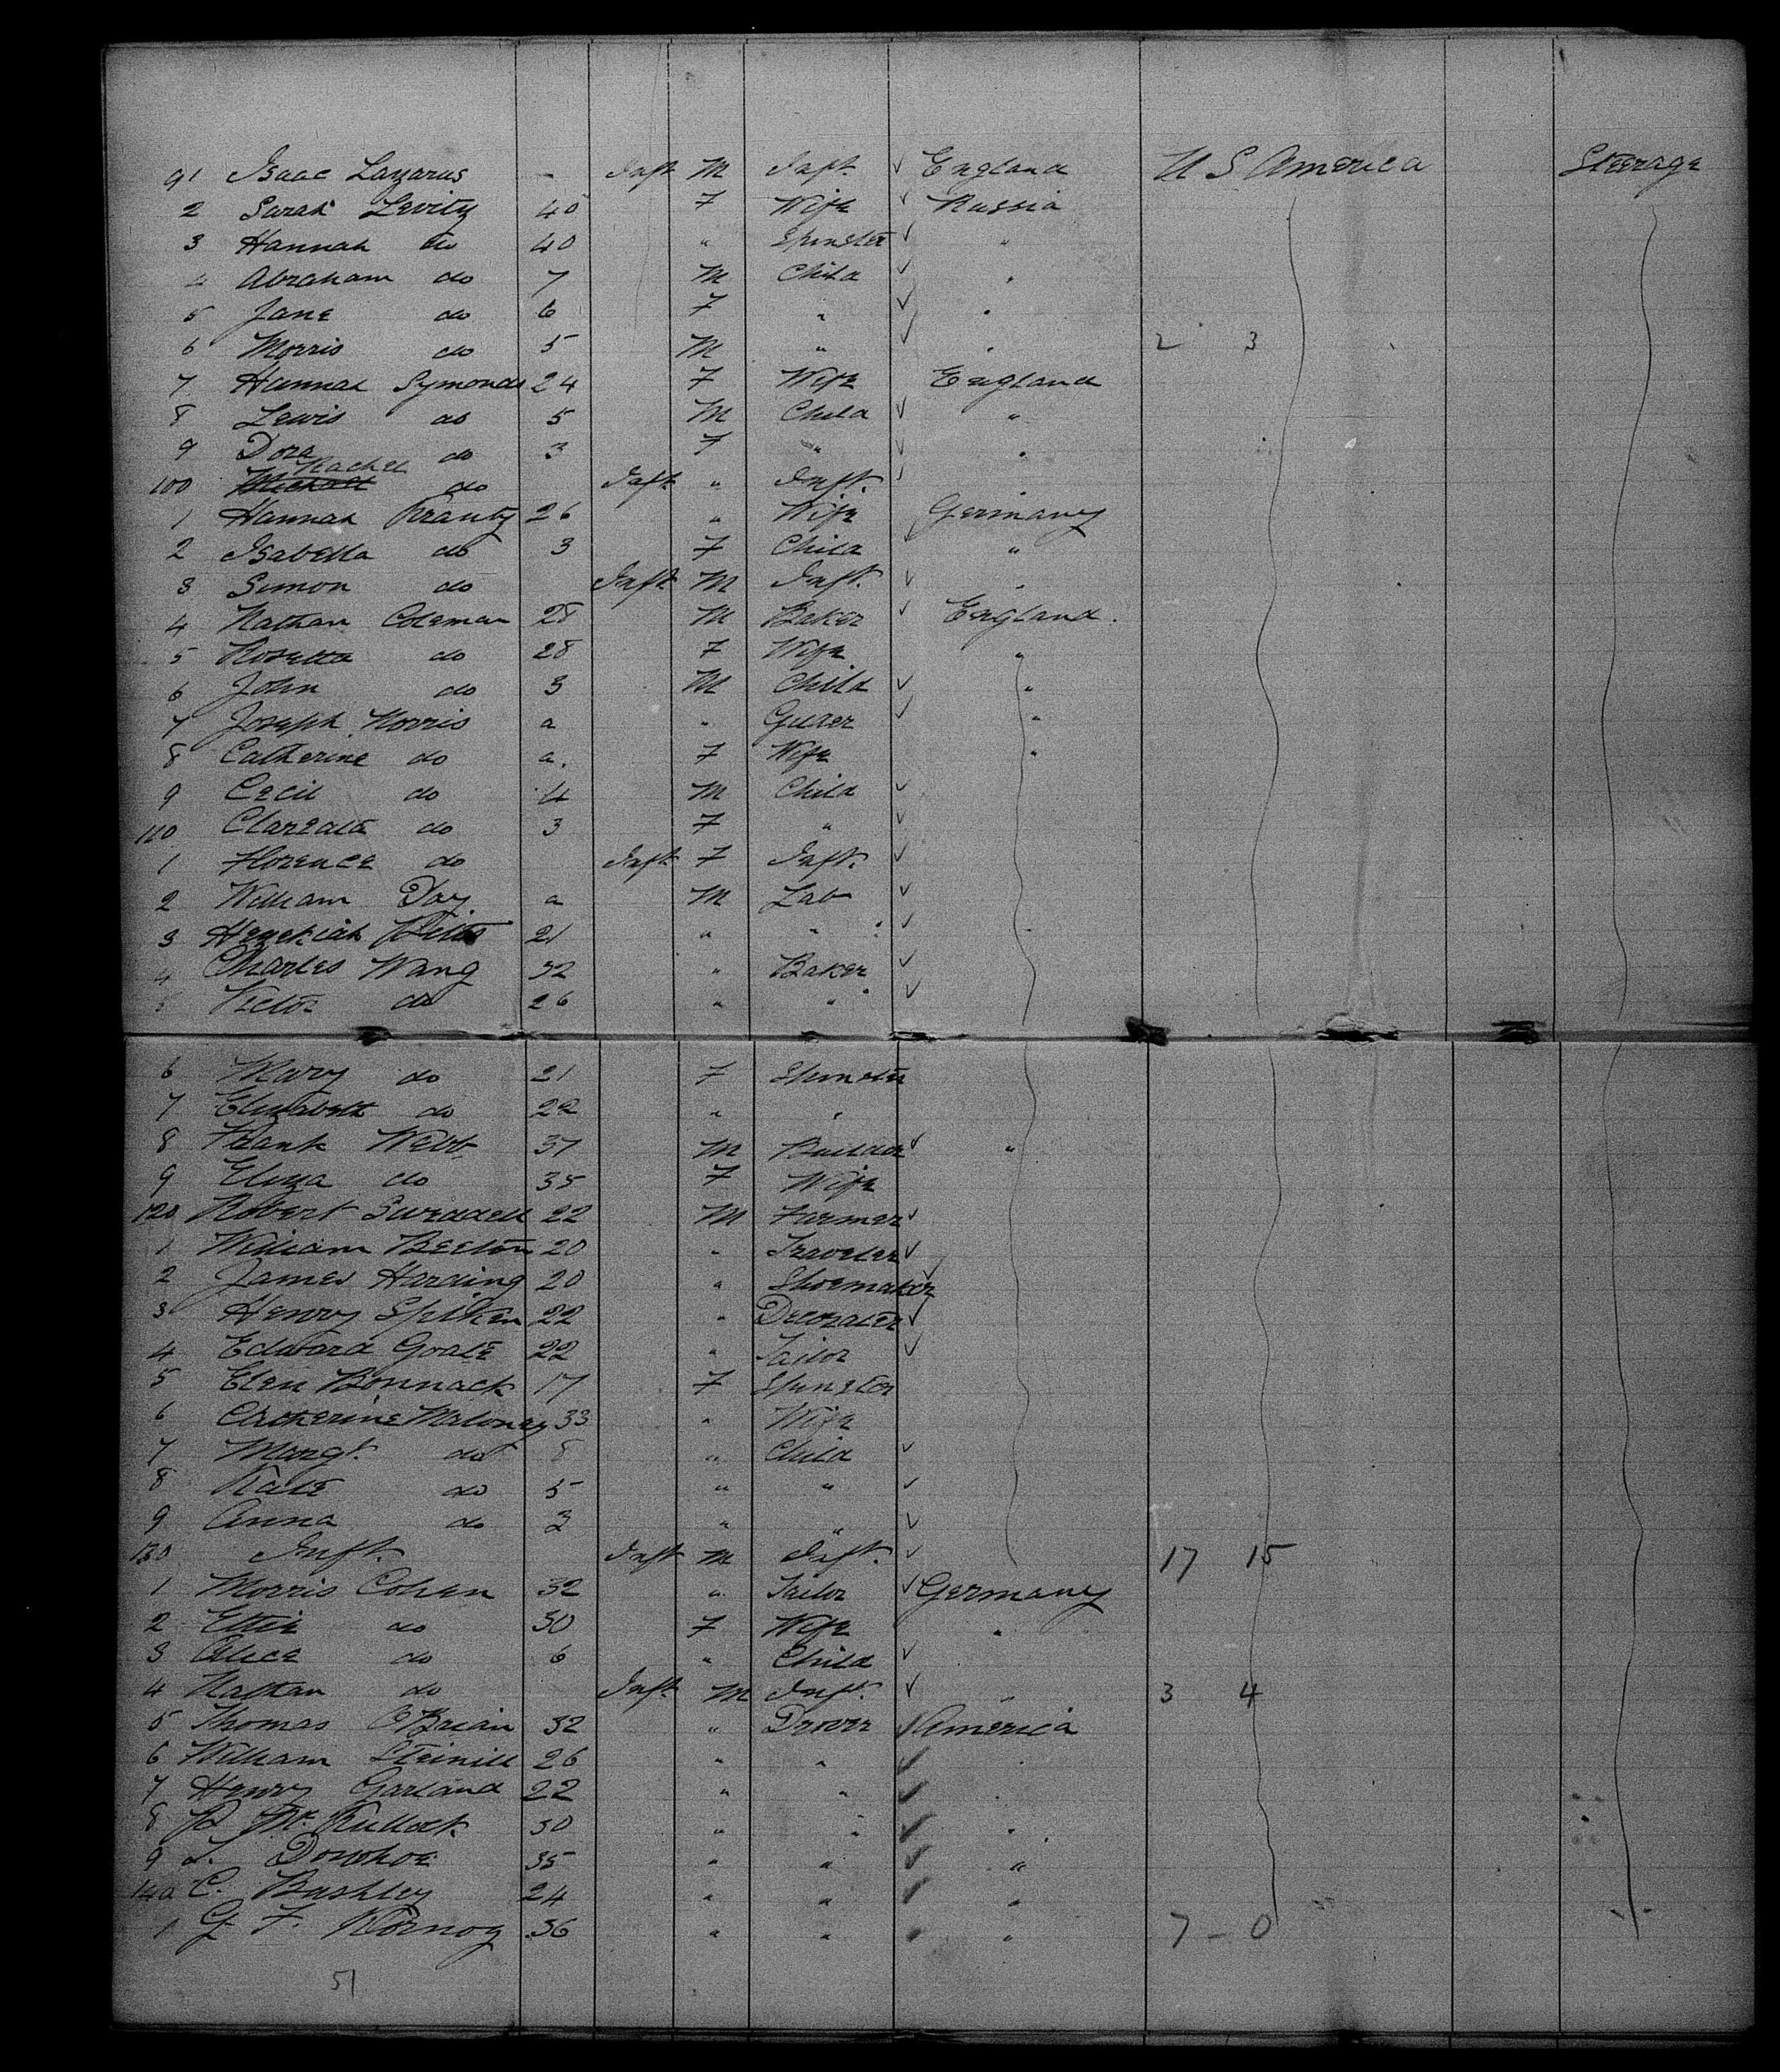 91 Isaac Lazarus - Inft M Inft. ✓ England U S America Steerage
2 Sarah Levity 40 F Wife ✓ Russia
3 Hannah do 40 " Spinster ✓ "
4 Abraham do 7 M Child ✓ "
5 Jane do 6 F " ✓ "
6 Morris do 5 M " ✓ " 2 3
7 Hannah Symonds 24 F Wife England
8 Lewis do 5 M Child ✓ "
9 Dora do 3 F " ✓ "
Rachel
100 do Inft " Inft. ✓ "
1 Hannah Krantz 26 " Wife Germany
2 Isabella do 3 F Child ✓ "
3 Simon do Inft M Inft. ✓ "
4 Nathan Coleman 28 M Baker ✓ England.
5 Rosetta do 28 F Wife "
6 John do 3 M Child ✓ "
7 Joseph Norris a " Guder ✓ "
8 Catherine do a. F Wife "
9 Cecil do 4 M Child ✓
110 do 3 F " ✓
1 Florence do Inft F Inft. ✓
2 William Day a M Lab ✓
3 Hezekiah 21 " " ✓
4 Charles Wang 32 " Baker ✓
5 Victor do 26 " " ✓
6 Mary do 21 F Spinster
7 Elizabeth do 22 " "
8 Frank Webb 37 M Builder ✓ "
9 Eliza do 35 F Wife
120 Robert Swaddell 22 M Farmer ✓
1 William Beeton 20 " Traveler ✓
2 James Harding 20 " Shoemaker ✓
3 Henry Spilken 22 " Decorater ✓
4 Edward Goate 22 " Tailor ✓
5 Elen Bonnack 17 F Spinster
6 Catherine Meloney 33 " Wife
7 Margt. do 8 " Child ✓
8 Kate do 5 " " ✓
9 Anna do 3 " " ✓
130 Inft. Inft M Inft. ✓ 17 15
1 Morris Cohen 32 " Tailor ✓ Germany
2 Ettie do 30 F Wife "
3 Alice do 6 " Child ✓
4 Nathan do Inft. M Inft. ✓ " 3 4
5 Thomas O'Brian 32 " Drover ✓ America
6 William Steinill 26 " " ✓ "
7 Henry Garland 22 " " ✓ "
8 Mc Kullock 30 " " ✓ "
9 L. Donohoe 35 " " ✓ "
140 C. Bashley 24 " " ✓ "
1 G F. Kornog 36 " " ✓ " 7 - 0
51